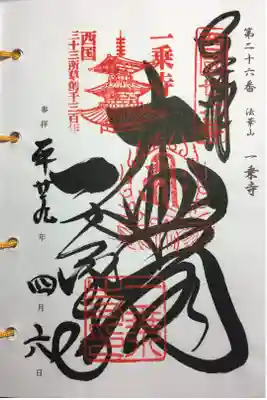 第二十六番 法華山 一乗寺
大悲閣
一乗寺
一乗寺
西国
三十三所草創千三百年
奉拝 平廿九年四月六日